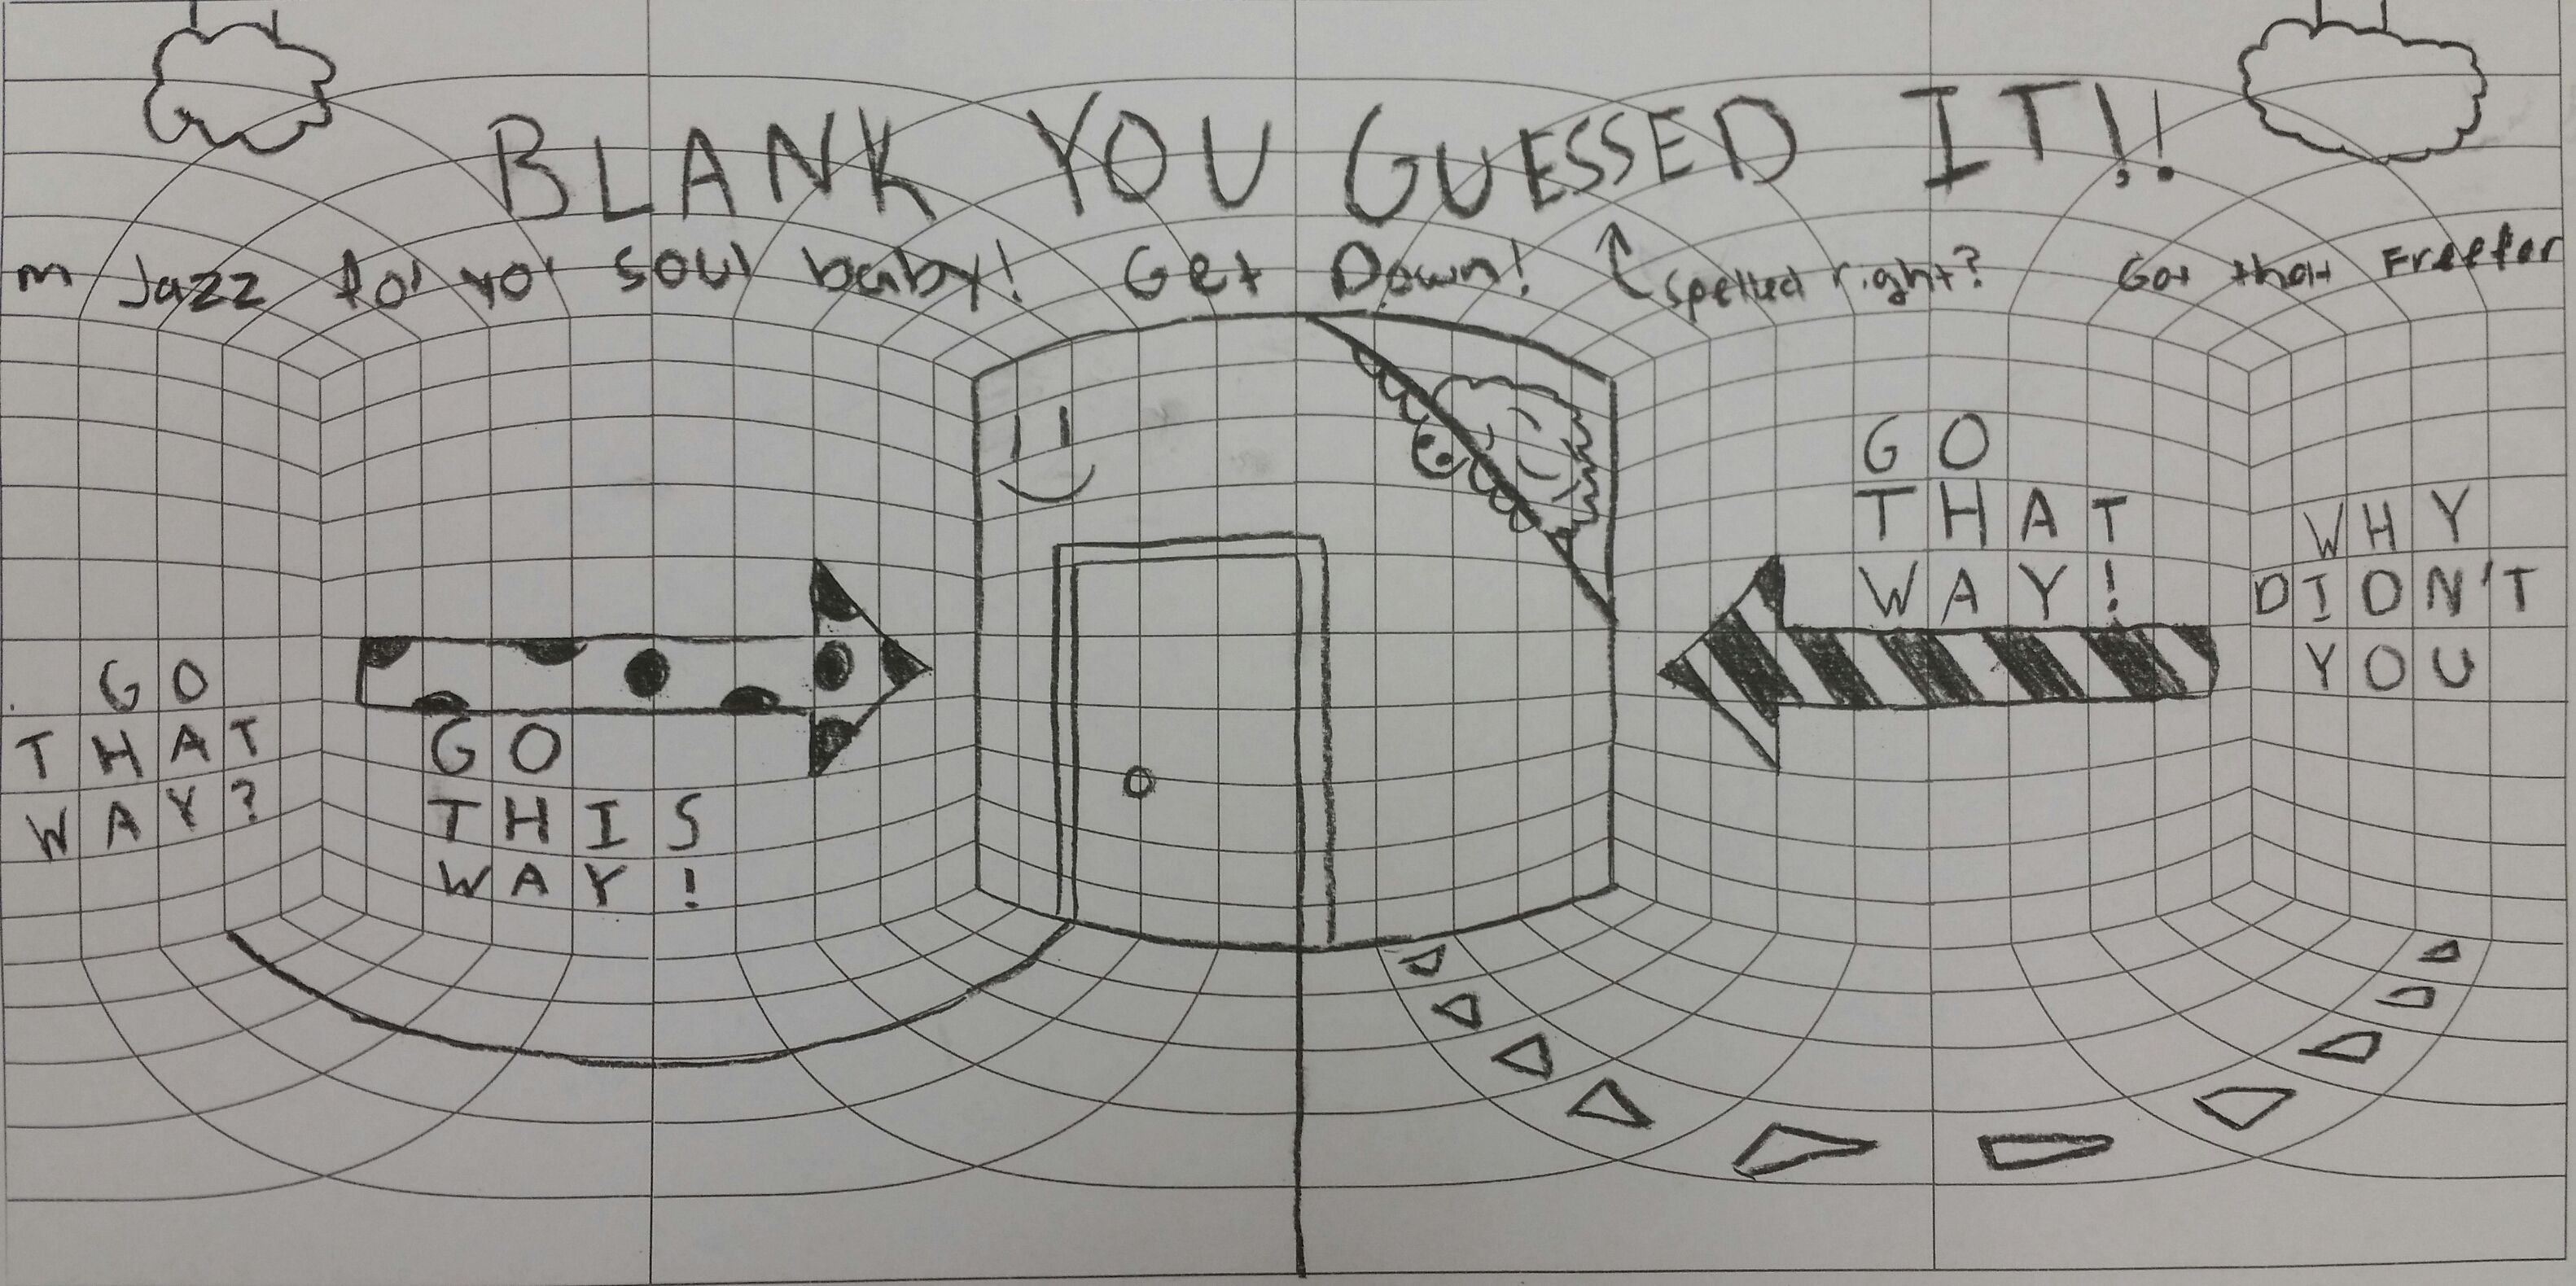 BLANK YOU GUESSED IT!!
m Jazz fo' yo' soul baby! Get Down! spelled right? Got that Freefor
GO
THAT
WAY!
WHY
DIDN'T
YOU
GO
THAT
WAY?
GO
THIS
WAY!